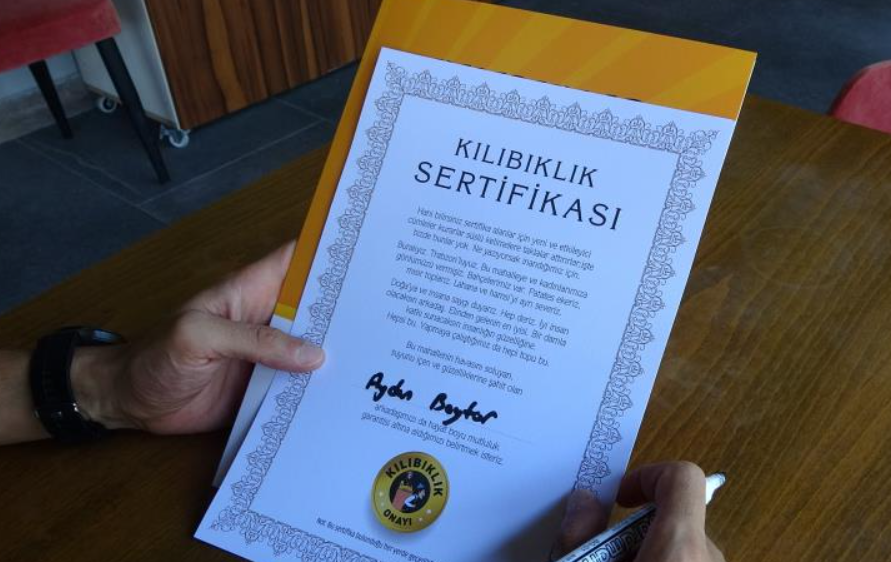 KILIBIKLIK
SERTİFİKASI
Hani bilirsiniz sertifika alanlar için yeni ve etkileyici
cümleler kurarlar süslü kelimelere taklalar attırırlar,işte
bizde bunlar yok. Ne yazıyorsak inandığımız için.
Buralıyız. Trabzon'luyuz. Bu mahalleye ve kadınlarımıza
gönlümüzü vermişiz. Bahçelerimiz var. Patates ekeriz,
mısır toplarız. Lahana ve hamsi'yi ayrı severiz.
Doğa'ya ve insana saygı duyarız. Hep deriz. İyi insan
olacaksın arkadaş. Elinden gelenin en iyisi. Bir damla
katkı sunacaksın insanlığın güzelliğine.
Hepsi bu. Yapmaya çalıştığımız da hepi topu bu.
Bu mahallenin havasını soluyan,
suyunu içen ve güzelliklerine şahit olan
Aydın Baytar
arkadaşımızı da hayat boyu mutluluk
garantisi altına aldığımızı belirtmek isteriz.
KILIBIKLIK
ONAYI
Not: Bu sertifika bulunduğu her yerde